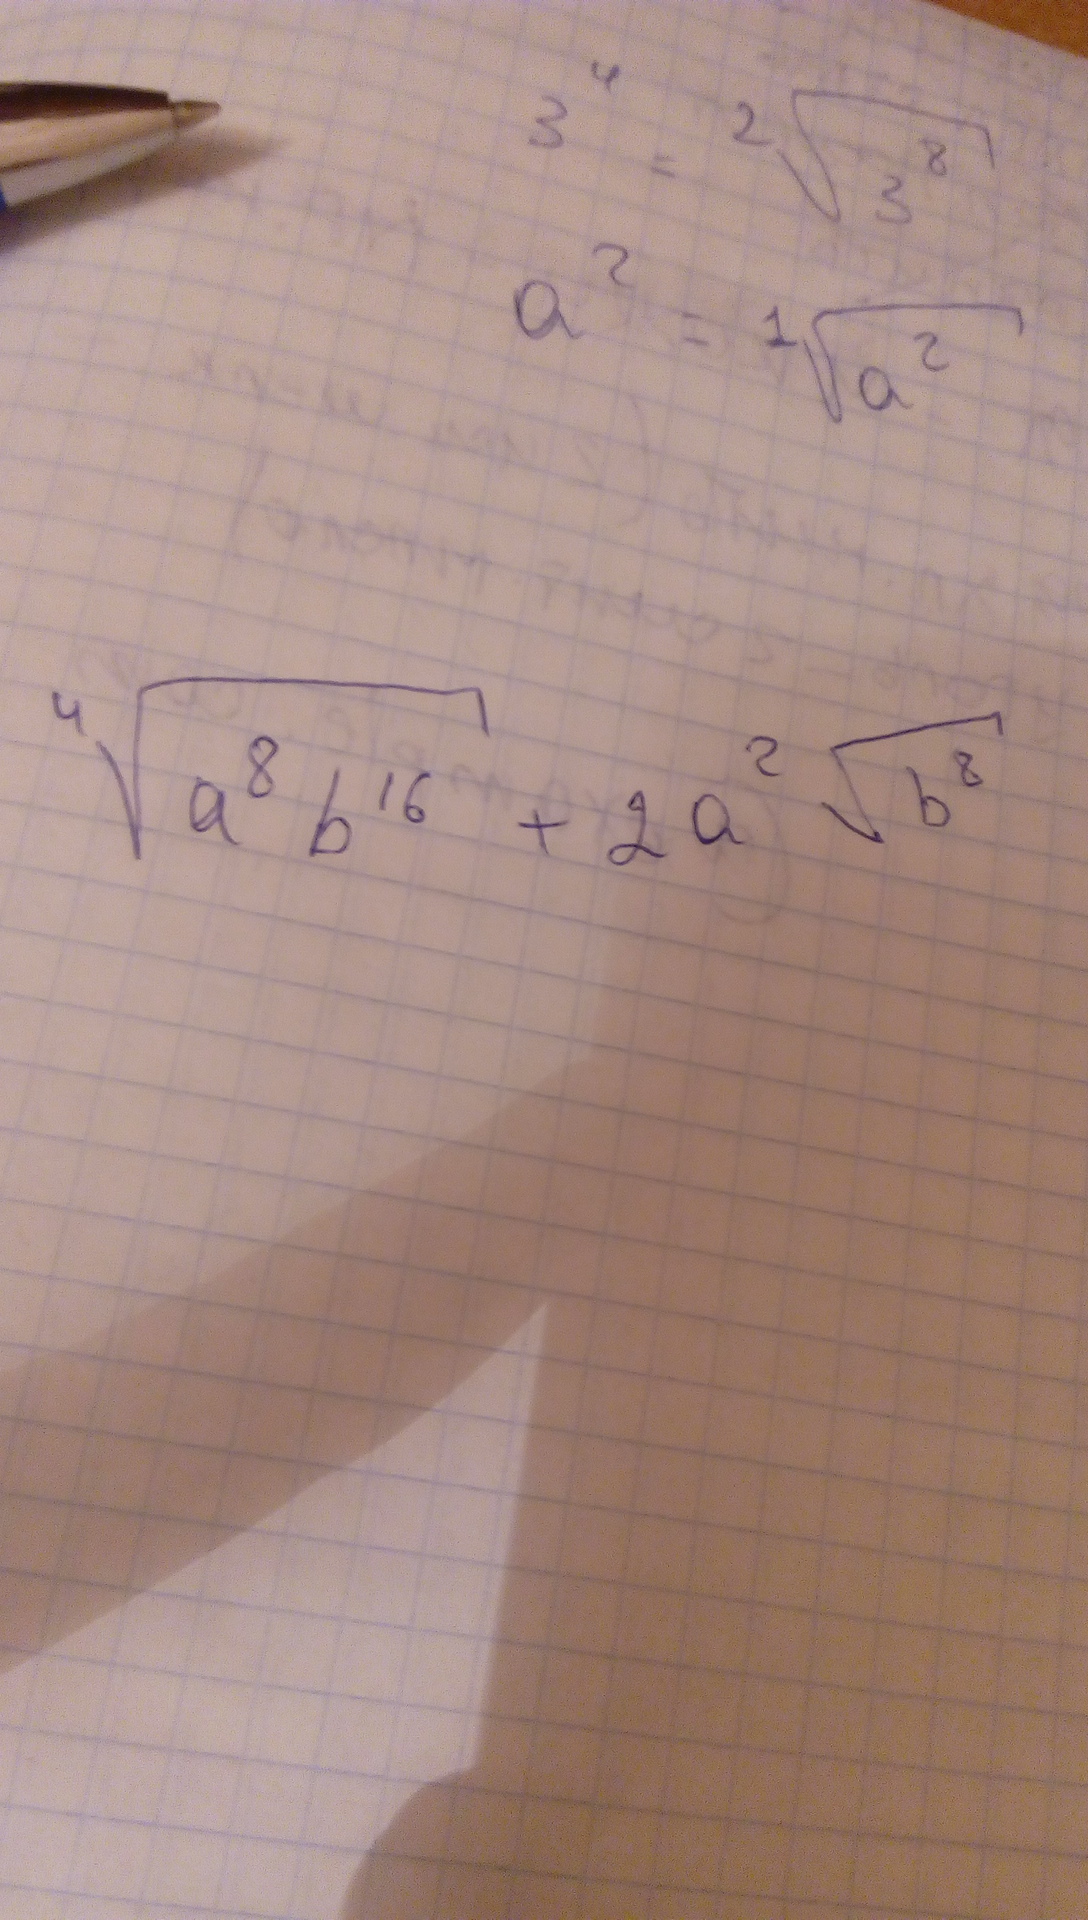 3⁴ = ²√3⁸
a² = ¹√a²
⁴√a⁸b¹⁶ + 2a²√b⁸